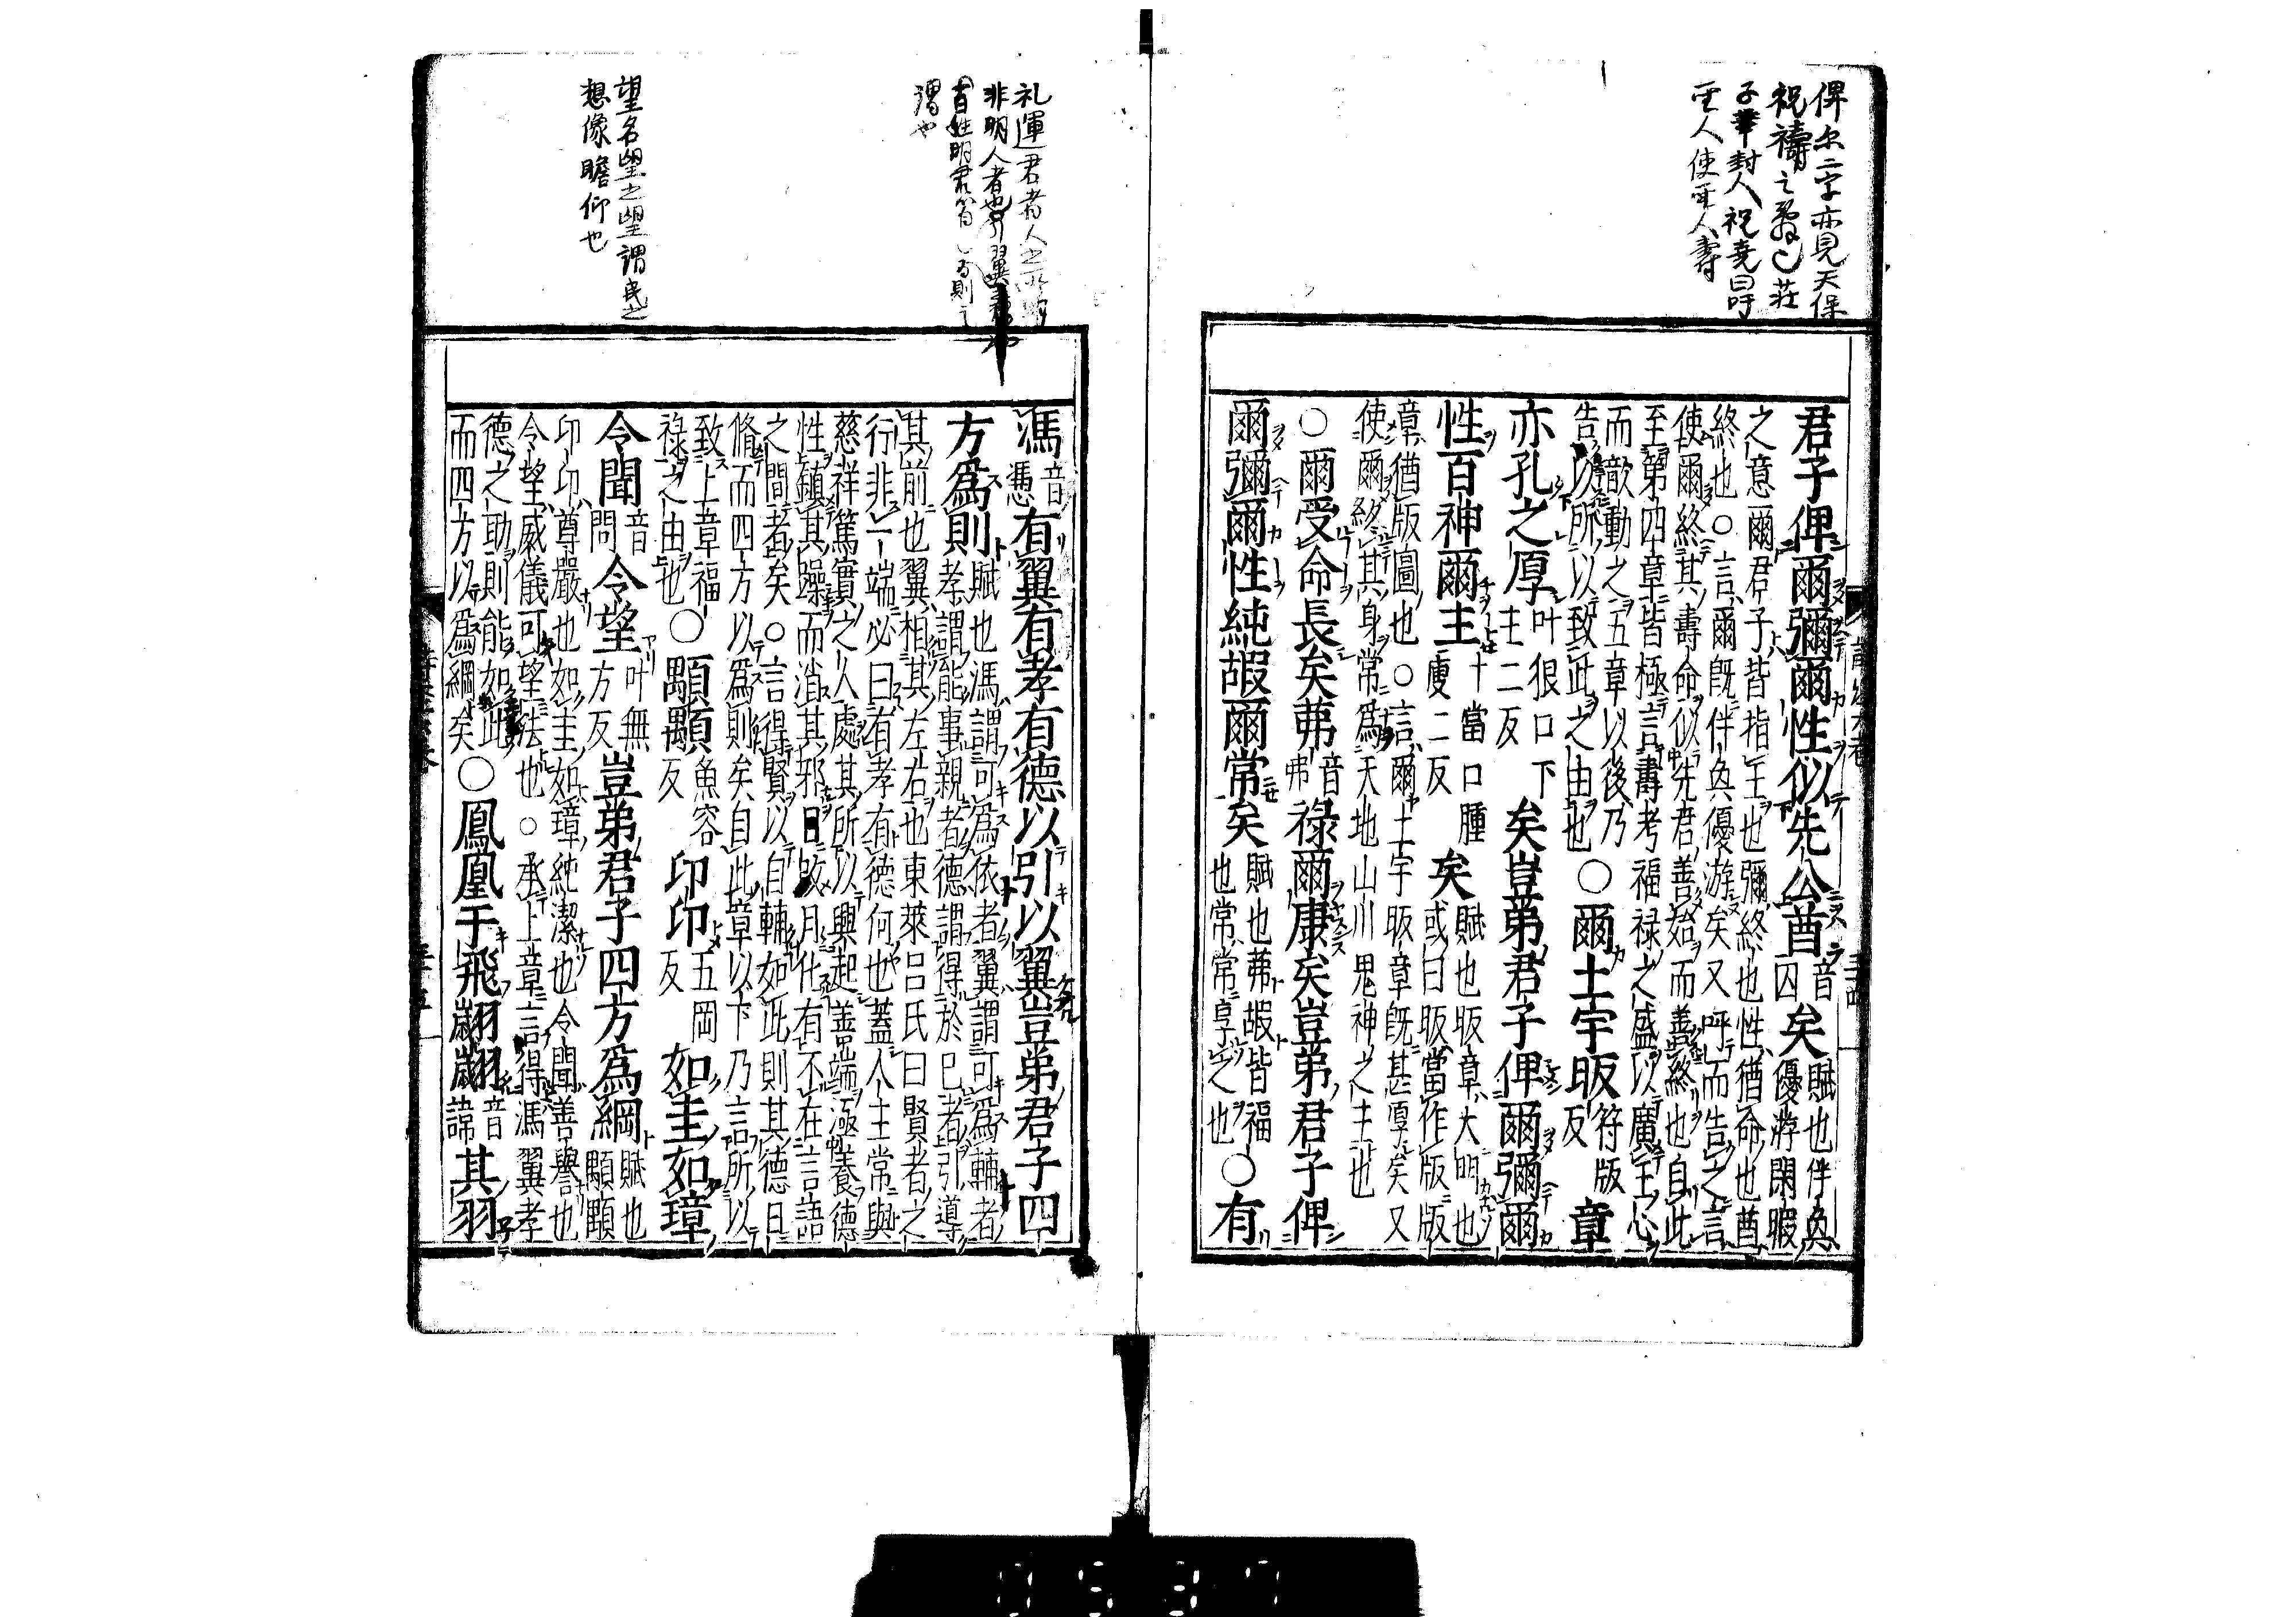 俾尓二字亦見天保
祝禱之辭也莊
子華封人祝堯曰吁
聖人使聖人壽
君子俾爾彌爾性似先公酋音囚矣賦也伴奐優游閑暇
之意爾君子皆指王也彌終也性猶命也酋
終也○言爾旣伴奐優游矣又呼而告之言
使爾終其壽命似先君善始而善終也自此
至第四章皆極言壽考福禄之盛以廣王心
而歆動之五章以後乃
告以所以致此之由也○爾土宇昄符版反章
亦孔之厚叶狠口下主二反矣豈弟君子俾爾彌爾
性百神爾主叶當口腫庾二反矣賦也昄章大明也
或曰昄當作版版
章猶版圖也○言爾土宇昄章旣甚厚矣又
使爾終其身常爲天地山川鬼神之主也
○爾受命長矣茀音弗祿爾康矣豈弟君子俾
爾彌爾性純嘏爾常矣賦也茀嘏皆福也常常享之也○有
礼運君者人之所
非明人者也
百姓則君
謂也
望名望之望謂民之
想像瞻仰也
馮音憑有翼有孝有德以引以翼豈弟君子四
方爲則賦也馮謂可爲依者翼謂可爲輔者
孝謂能事親者德謂得於已者引導
其前也翼相其左右也東萊呂氏曰賢者之
行非一端必曰有孝有德何也蓋人主常與
慈祥篤實之人處其所以興起善端涵養德
性鎮其躁而消其邪日改月化有不在言語
之間者矣○言得賢以自輔如此則其德日
脩而四方以爲則矣自此章以下乃言所以
致上章福
祿之由也○顒顒魚容反卬卬五岡反如圭如璋
令聞音問令望叶無方反豈弟君子四方爲綱賦也顒顒
卬卬尊嚴也如圭如璋純潔也令聞善譽也
令望威儀可望法也○承上章言得馮翼孝
德之助則能如此
而四方以爲綱矣○鳳凰于飛翽翽音諱其羽